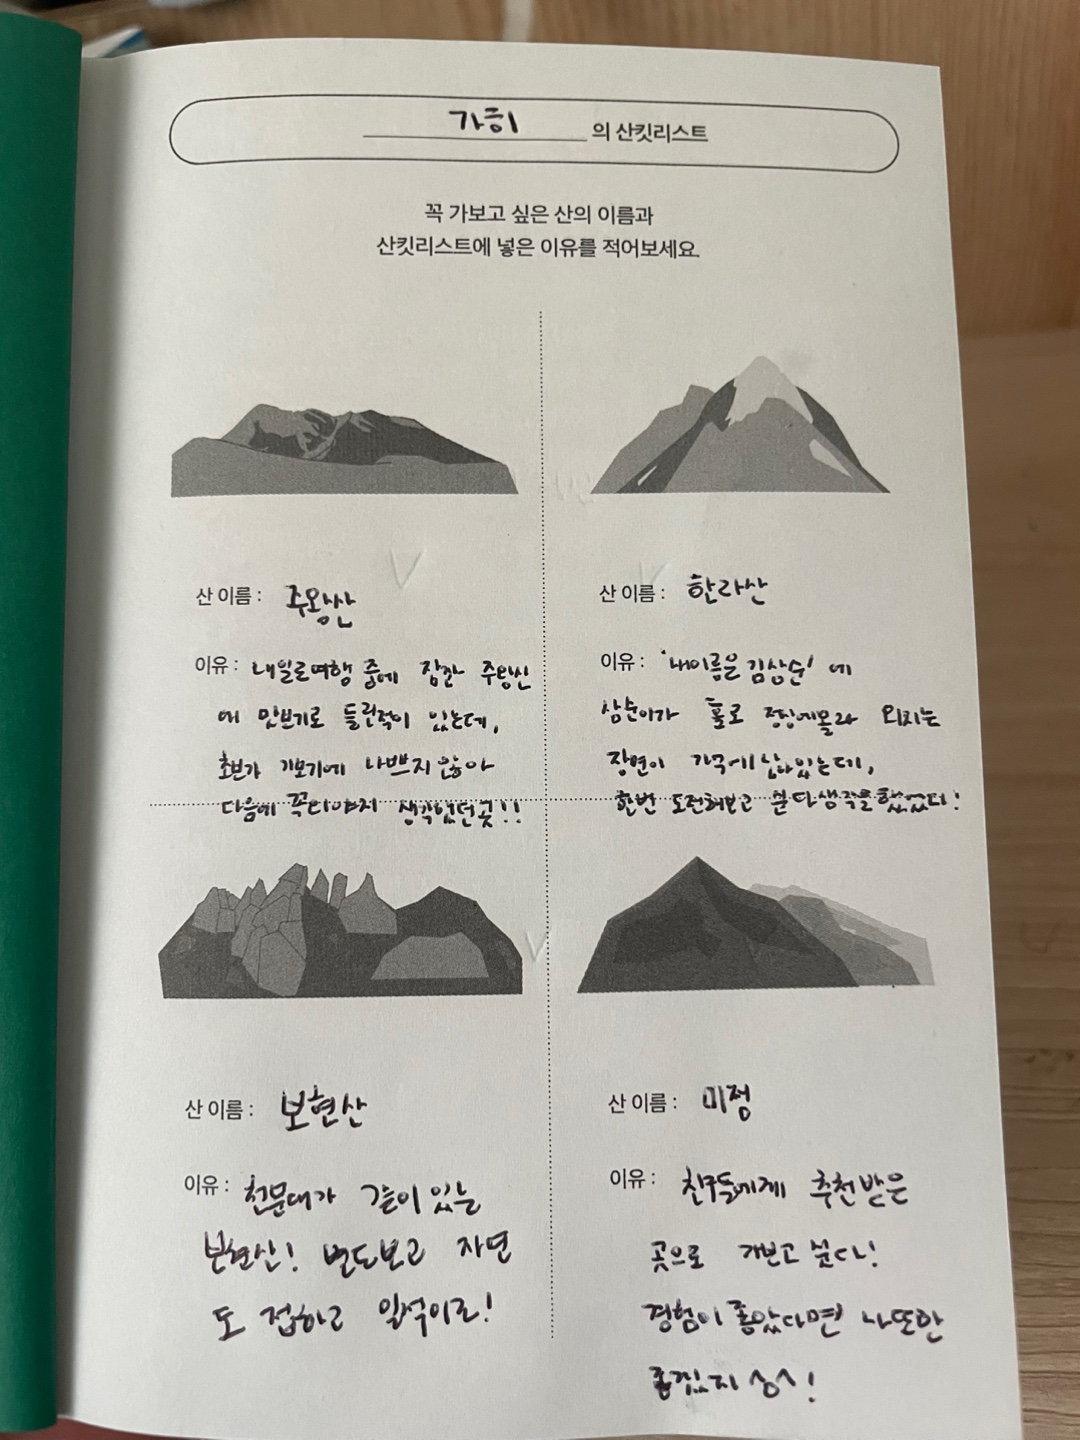 가희 의 산킷리스트
꼭 가보고 싶은 산의 이름과
산킷리스트에 넣은 이유를 적어보세요.
산 이름 : 주왕산
이유 : 내일로여행 중에 잠깐 주왕산
에 맛보기로 들린적이 있는데,
초보가 가보기에 나쁘지 않아
다음에 꼭 생각했던곳!!
산 이름 : 한라산
이유 : '내이름은 김삼순' 에
삼순이가 홀로 정상에올라 외치는
장면이 기억에 남아있는데,
한번 도전해보고 싶다생각을했었다!
산 이름 : 보현산
이유 : 천문대가 같이 있는
보현산! 별도보고 자연
도 접하고 일석이조!
산 이름 : 미정
이유 : 친구들에게 추천받은
곳으로 가보고 싶다!
경험이 좋았다면 나또한
좋겠지 싶어!